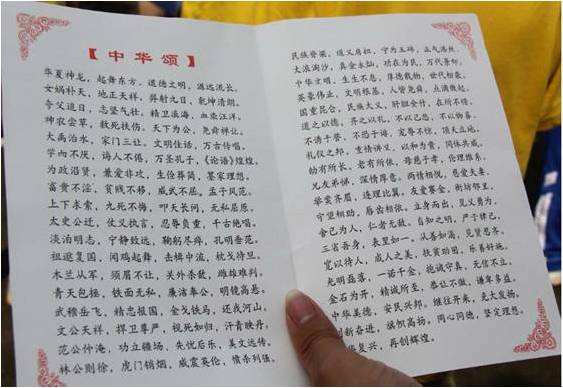 【中华颂】
华夏神龙，起舞东方，道德文明，源远流长。
女娲补天，地正天祥，羿射九日，乾坤清朗。
夸父追日，志坚气壮，精卫填海，血染汪洋。
神农尝草，救死扶伤。天下为公，尧舜禅让。
大禹治水，家门三让。文明佳话，万古传唱。
学而不厌，诲人不倦，万圣孔子，《论语》煌煌。
为政沼贤，兼爱非攻，生俭葬简，墨家理想。
富贵不淫，贫贱不移，威武不屈。孟子风范。
上下求索，九死不悔，叩天长问，无私屈原。
太史公迁，仗义执言，忍辱负重，千古绝唱。
淡泊明志，宁静致远，鞠躬尽瘁，孔明奇范。
祖逖复国，闻鸡起舞，击楫中流，枕戈待旦。
木兰从军，须眉不让，关外杀敌，雌雄难判。
青天包拯，铁面无私，廉洁奉公，明镜高悬。
武穆岳飞，精忠报国，金戈铁马，还我河山。
文公天祥，捍卫尊严，视死如归，汗青映丹。
范公仲淹，功立疆场，先忧后乐，美文远传。
林公则徐，虎门销烟，威震英伦，愤杀列强。
民族脊梁，道义肩担，宁为玉碎，正气浩然。
大浪淘沙，真金永灿，功在为民，万代景仰。
中华文明，生生不息，厚德载物，世代相袭。
英豪伟业，文明根基，人皆尧舜，点滴做起。
国重昆仑，民族大义，肝胆金什，在所不惜。
道之以德，齐之以礼，不以己悲，不以物喜。
不诱于誉，不恐于诽，宠辱不惊，顶天立地。
礼仪之邦，重情讲义，以和为贵，同体共戚。
幼有所长，老有所依，母慈子孝，伦理维系，
兄友弟悌，深情厚意。两情相悦，恩爱夫妻，
举案齐眉，连理比翼。友爱寡金，街坊邻里，
守望相助，唇齿相依。立身而出，见义勇为，
舍己为人，仁者无敌。自知之明，严于律己，
三省吾身，表里如一。从善如流，见贤思齐。
宽以待人，成人之美，扶贫助困，乐善好施。
光明磊落，一诺千金，抱诚守真，无信不立。
金石为开，精诚所至，恭让不做，谦卑多益。
中华美德，安民兴邦。继往开来，光大发扬。
创新奋进，旗帜高扬。同心同德，坚定理想。
华复兴，再创辉煌。